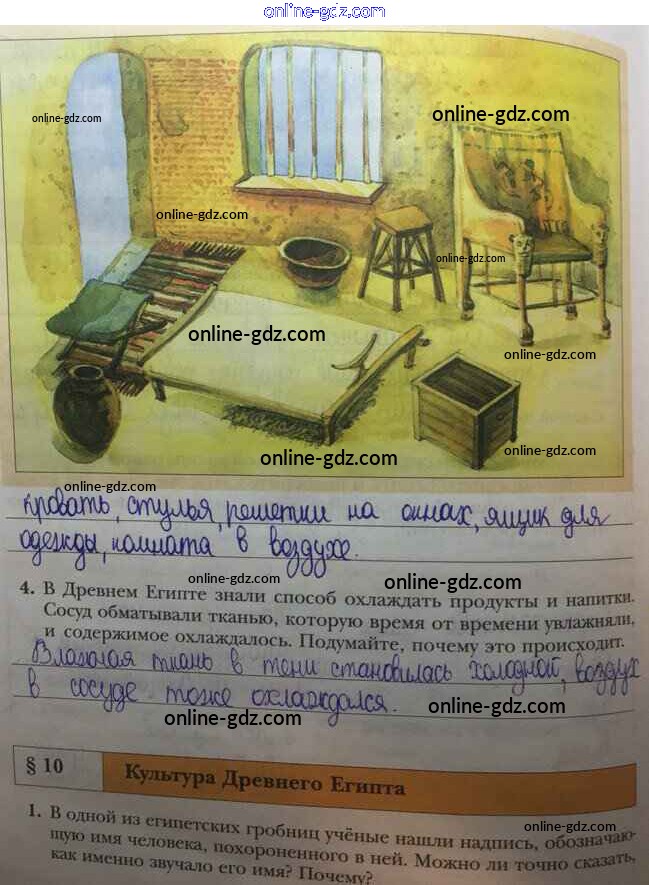 online-gdz.com
online-gdz.com
online-gdz.com
online-gdz.com
online-gdz.com
online-gdz.com
online-gdz.com
online-gdz.com
online-gdz.com
online-gdz.com
кровать, стулья, решетки на окнах, ящик для
одежды, комната в воздухе.
online-gdz.com
online-gdz.com
4. В Древнем Египте знали способ охлаждать продукты и напитки.
Сосуд обматывали тканью, которую время от времени увлажняли,
и содержимое охлаждалось. Подумайте, почему это происходит.
Влажная ткань в тени становилась холодной, воздух
в сосуде тоже охлаждался.
online-gdz.com
online-gdz.com
§ 10
Культура Древнего Египта
online-gdz.com
1. В одной из египетских гробниц учёные нашли надпись, обозначаю-
щую имя человека, похороненного в ней. Можно ли точно сказать,
как именно звучало его имя? Почему?